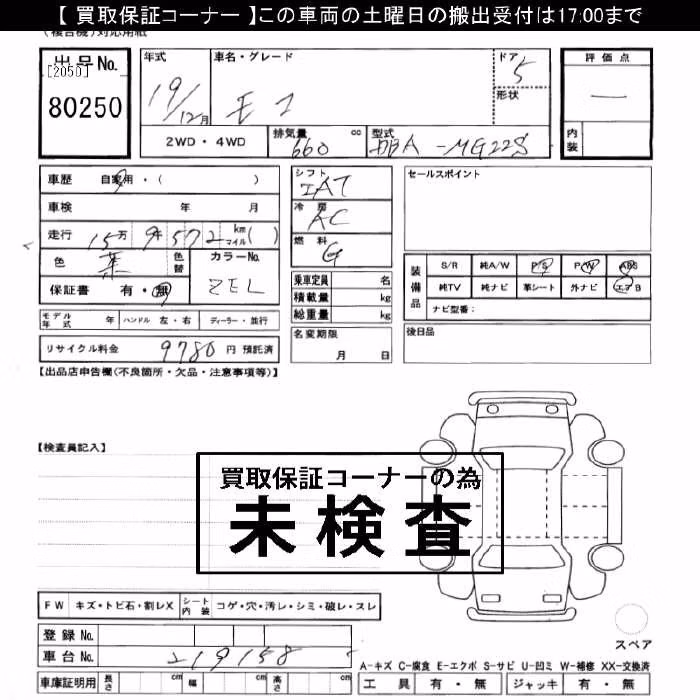 【 買取保証コーナー 】この車両の土曜日の搬出受付は17:00まで
出品No.
[2050]
80250
年式
19/12月
車名・グレード
モコ
ドア
5
形状
評価点
—
内装
2WD・4WD
排気量 660 cc
型式 DBA-MG22S
車歴 自家用・( )
車検 年 月
走行 15万9572 km マイル ( )
色 茶 色替
カラーNo. ZEL
保証書 有・無
シフト IAT
冷房 AC
燃料 G
乗車定員 名
積載量 kg
総重量 kg
セールスポイント
装備品
S/R 純A/W P/S P/W ABS
純TV 純ナビ 革シート 外ナビ エアB
ナビ型番:
モデル年式 年 ハンドル 左・右 ディーラー・並行
名変期限
月 日
後日品
リサイクル料金 9780 円 預託済
【出品店申告欄(不良箇所・欠品・注意事項等)】
【検査員記入】
買取保証コーナーの為
未検査
FW キズ・トビ石・割レX シート内装 コゲ・穴・汚レ・シミ・破レ・スレ
登録No.
車台No. 219158
スペア
A-キズ C-腐食 E-エクボ S-サビ U-凹ミ W-補修 XX-交換済
車庫証明用 長さ cm 幅 cm 高さ cm
工具 有・無 ジャッキ 有・無